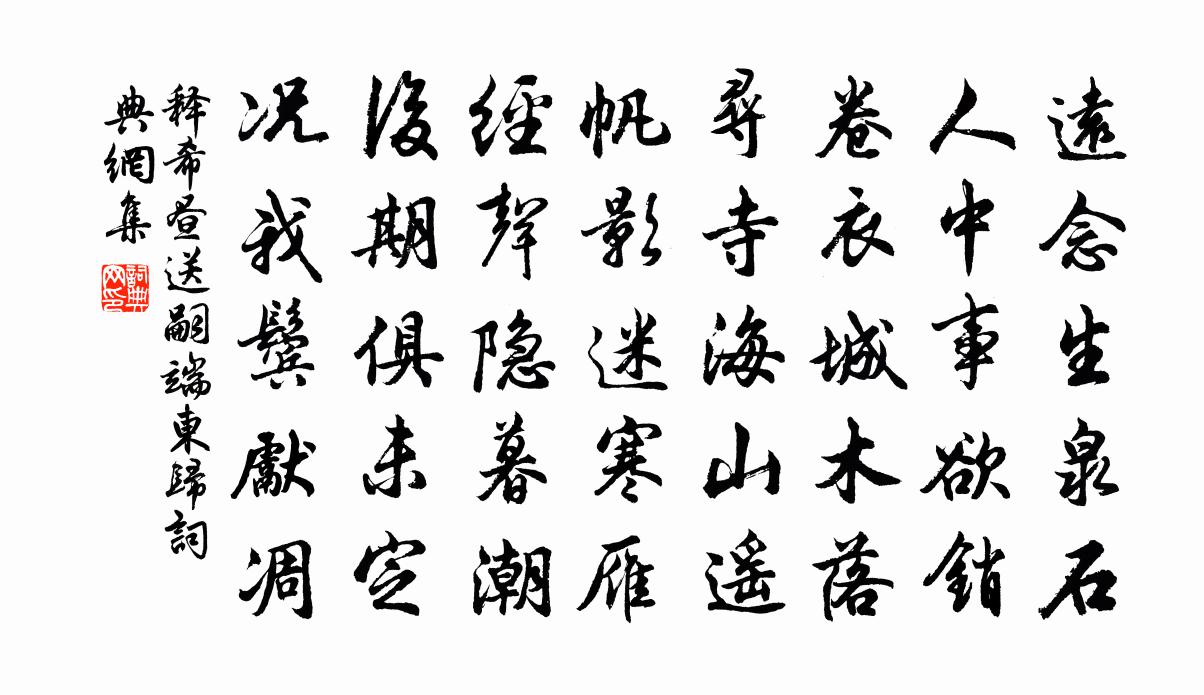 遠念生泉石
人中事欲銷
卷衣城木落
尋寺海山遥
帆影迷寒雁
經聲隐暮潮
後期俱未定
况我鬓獻凋
释希昼送嗣端東歸詞
典網集
詞典网印